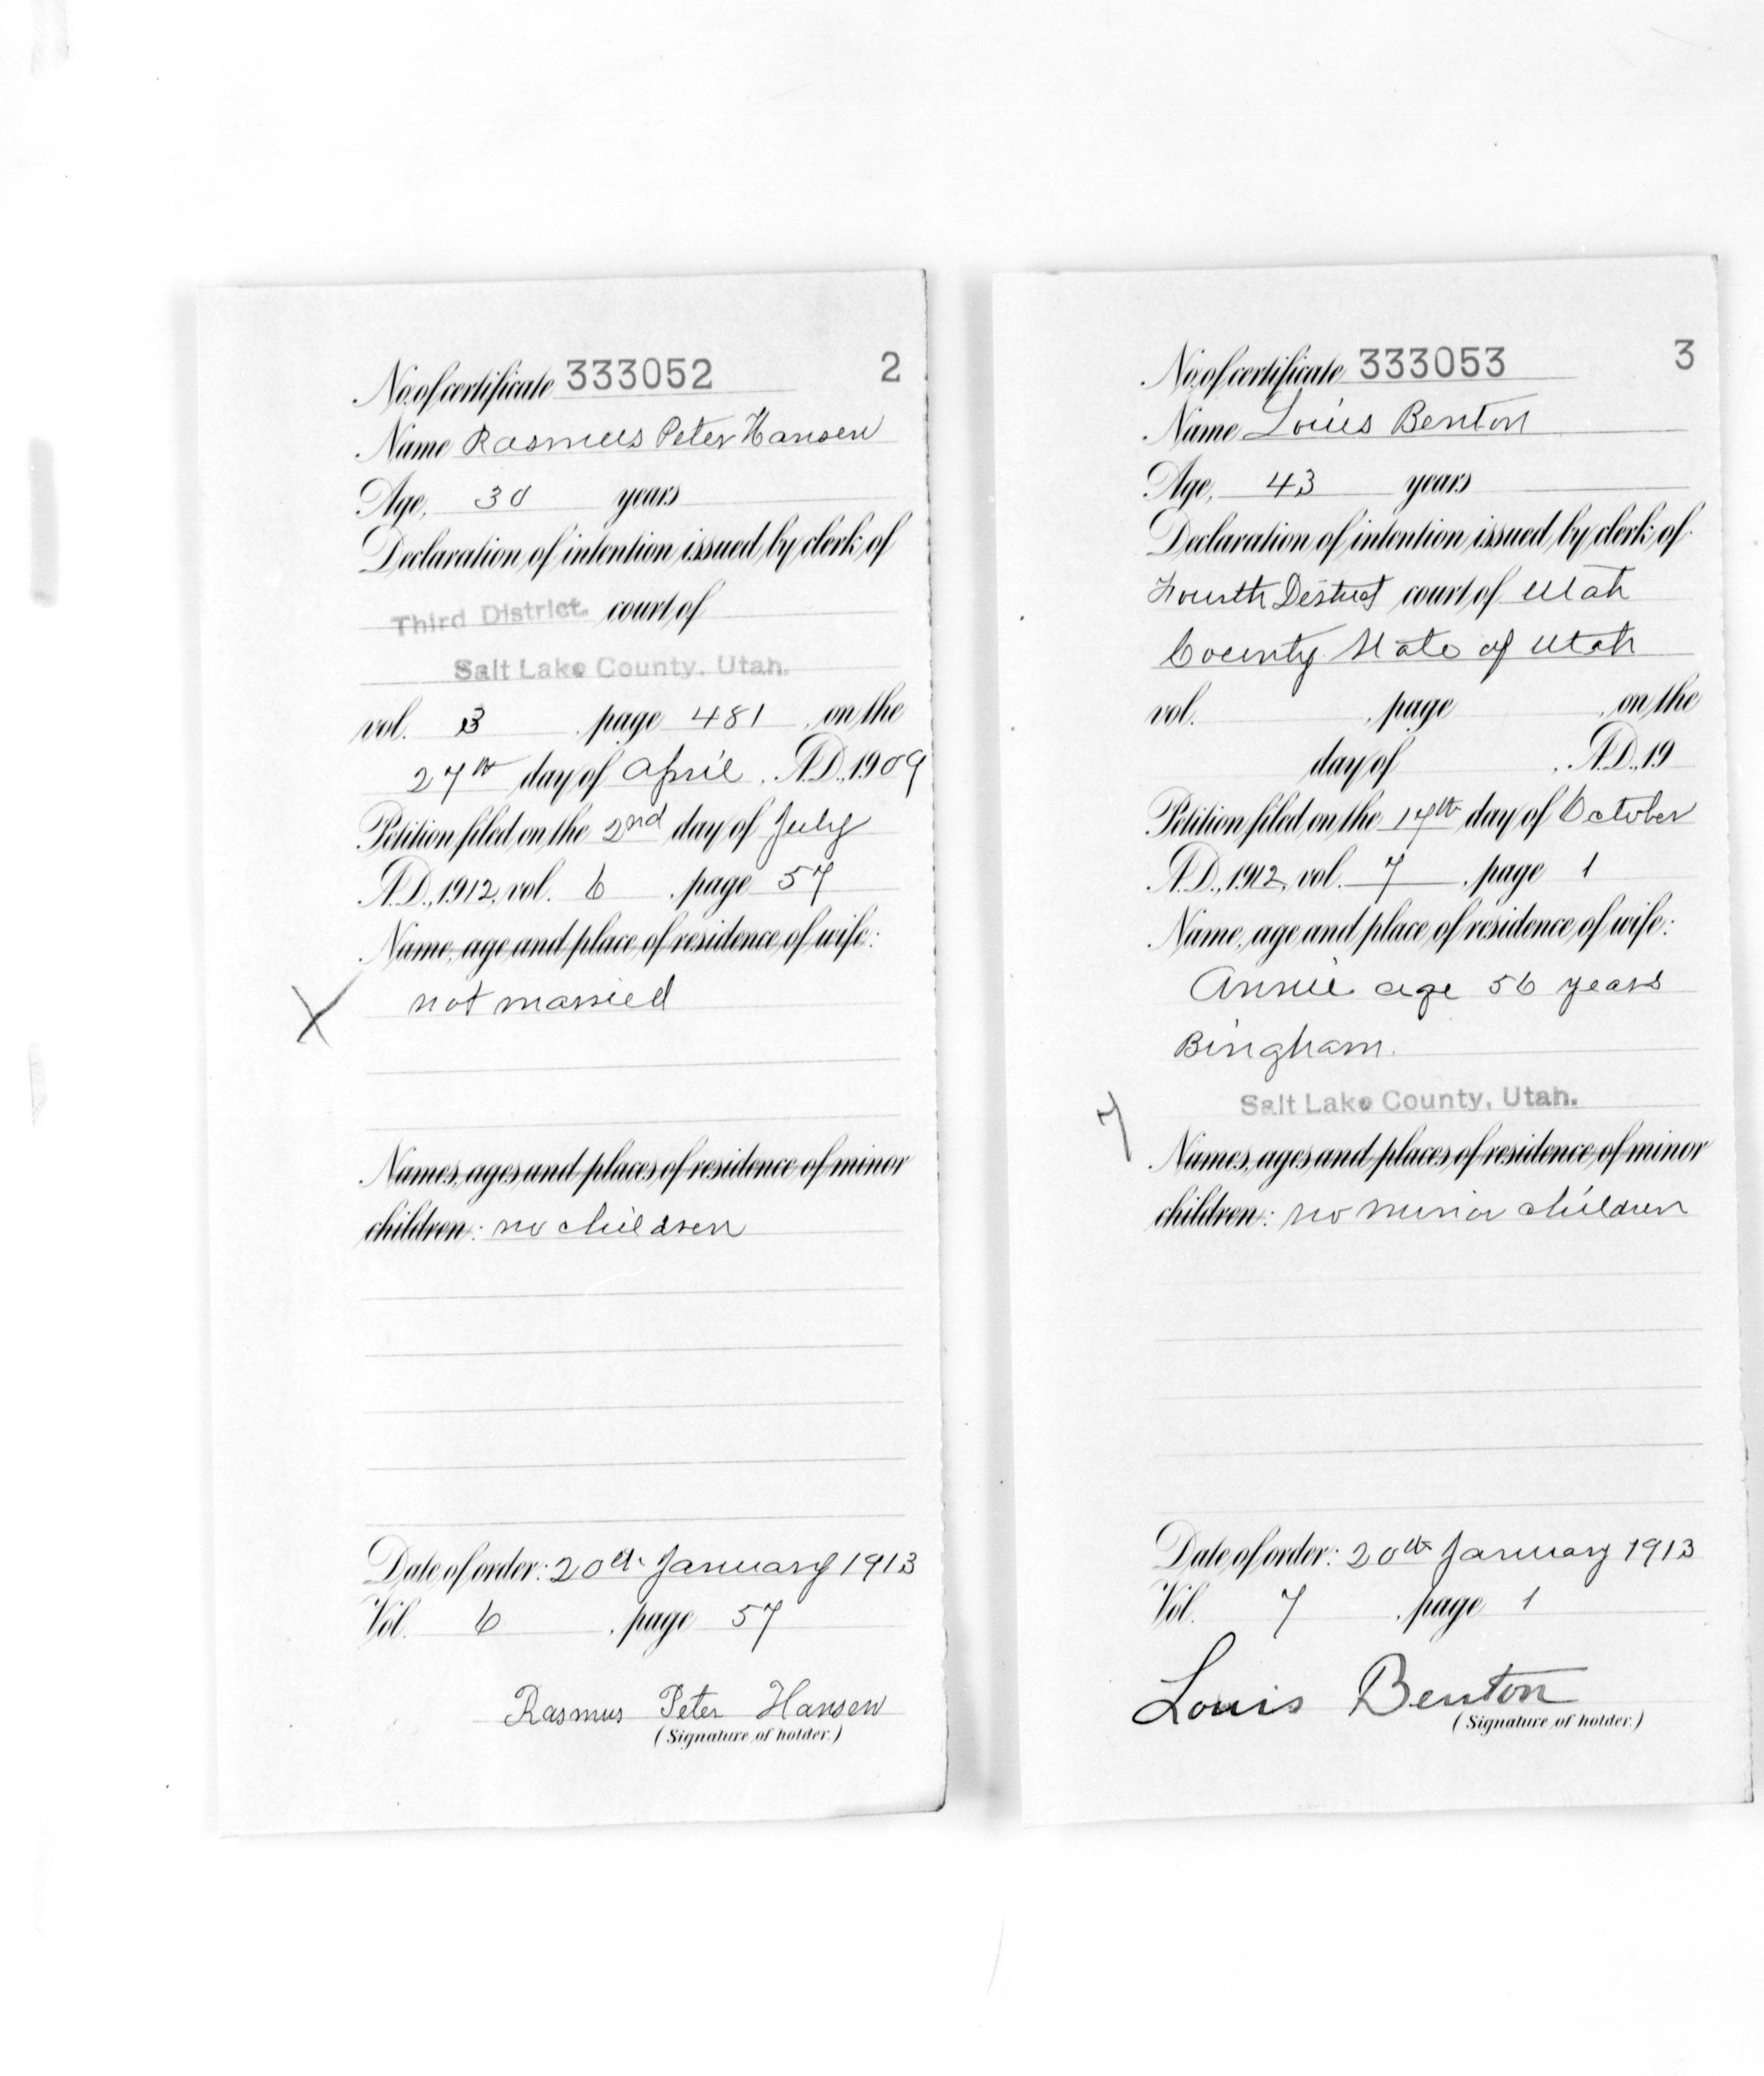 No. of certificate 333052 2
Name Rasmus Peter Hansen
Age, 30 years
Declaration of intention issued by clerk of
Third District. court of
Salt Lake County, Utah.
vol. 3, page 481, on the
27th day of April, A.D. 1909
Petition filed on the 2nd day of July
A.D., 1912, vol. 6, page 57
Name, age and place of residence of wife:
not married
X
Names, ages and places of residence of minor
children: no children
Date of order: 20th January 1913
Vol. 6, page 57
Rasmus Peter Hansen
(Signature of holder.)
No. of certificate 333053 3
Name Louis Benton
Age, 43 years
Declaration of intention issued by clerk of
Fourth District court of Utah
County State of Utah
vol. , page , on the
day of , A.D. 19
Petition filed on the 17th day of October
A.D., 1912, vol. 7, page 1
Name, age and place of residence of wife:
Annie age 56 years
Bingham.
Salt Lake County, Utah.
7
Names, ages and places of residence of minor
children: no minor children
Date of order: 20th January 1913
Vol. 7, page 1
Louis Benton
(Signature of holder.)